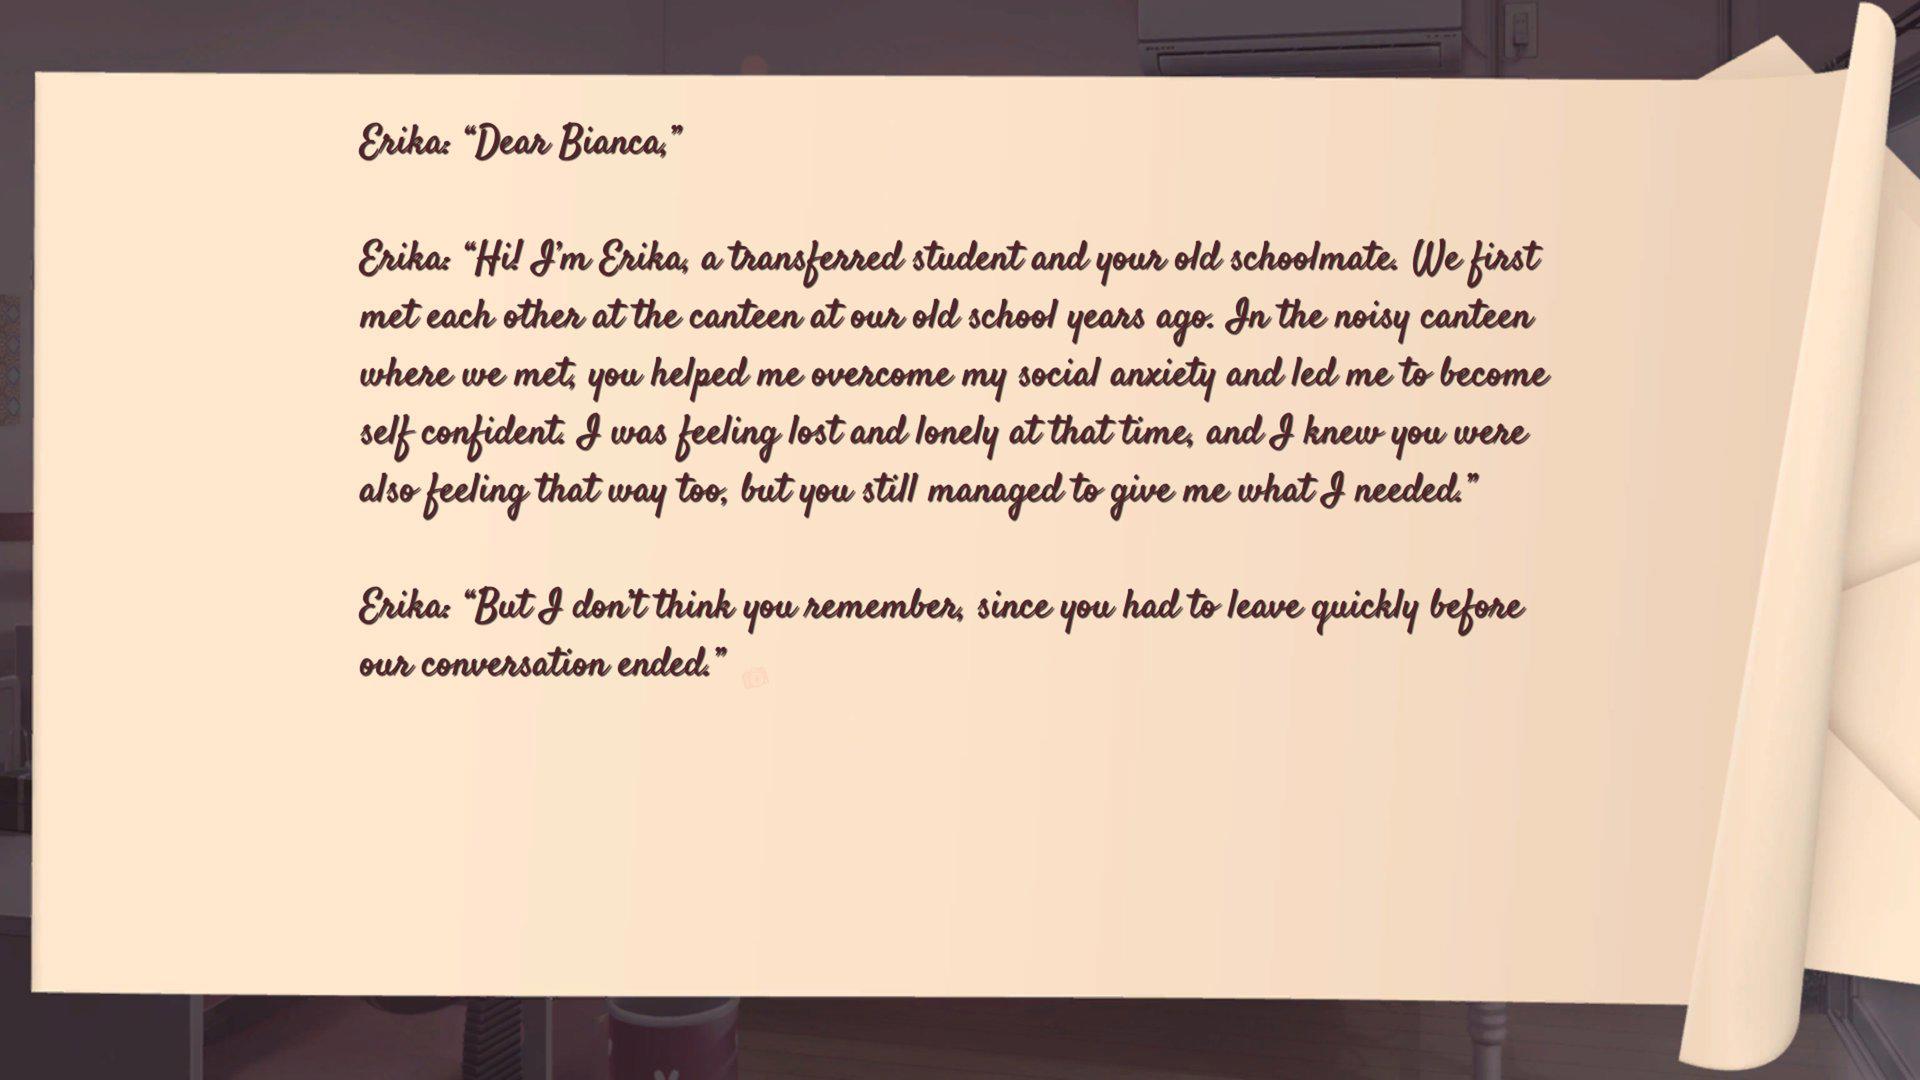 Erika: “Dear Bianca,”
Erika: “Hi! I’m Erika, a transferred student and your old schoolmate. We first
met each other at the canteen at our old school years ago. In the noisy canteen
where we met, you helped me overcome my social anxiety and led me to become
self confident. I was feeling lost and lonely at that time, and I knew you were
also feeling that way too, but you still managed to give me what I needed.”
Erika: “But I don’t think you remember, since you had to leave quickly before
our conversation ended.”